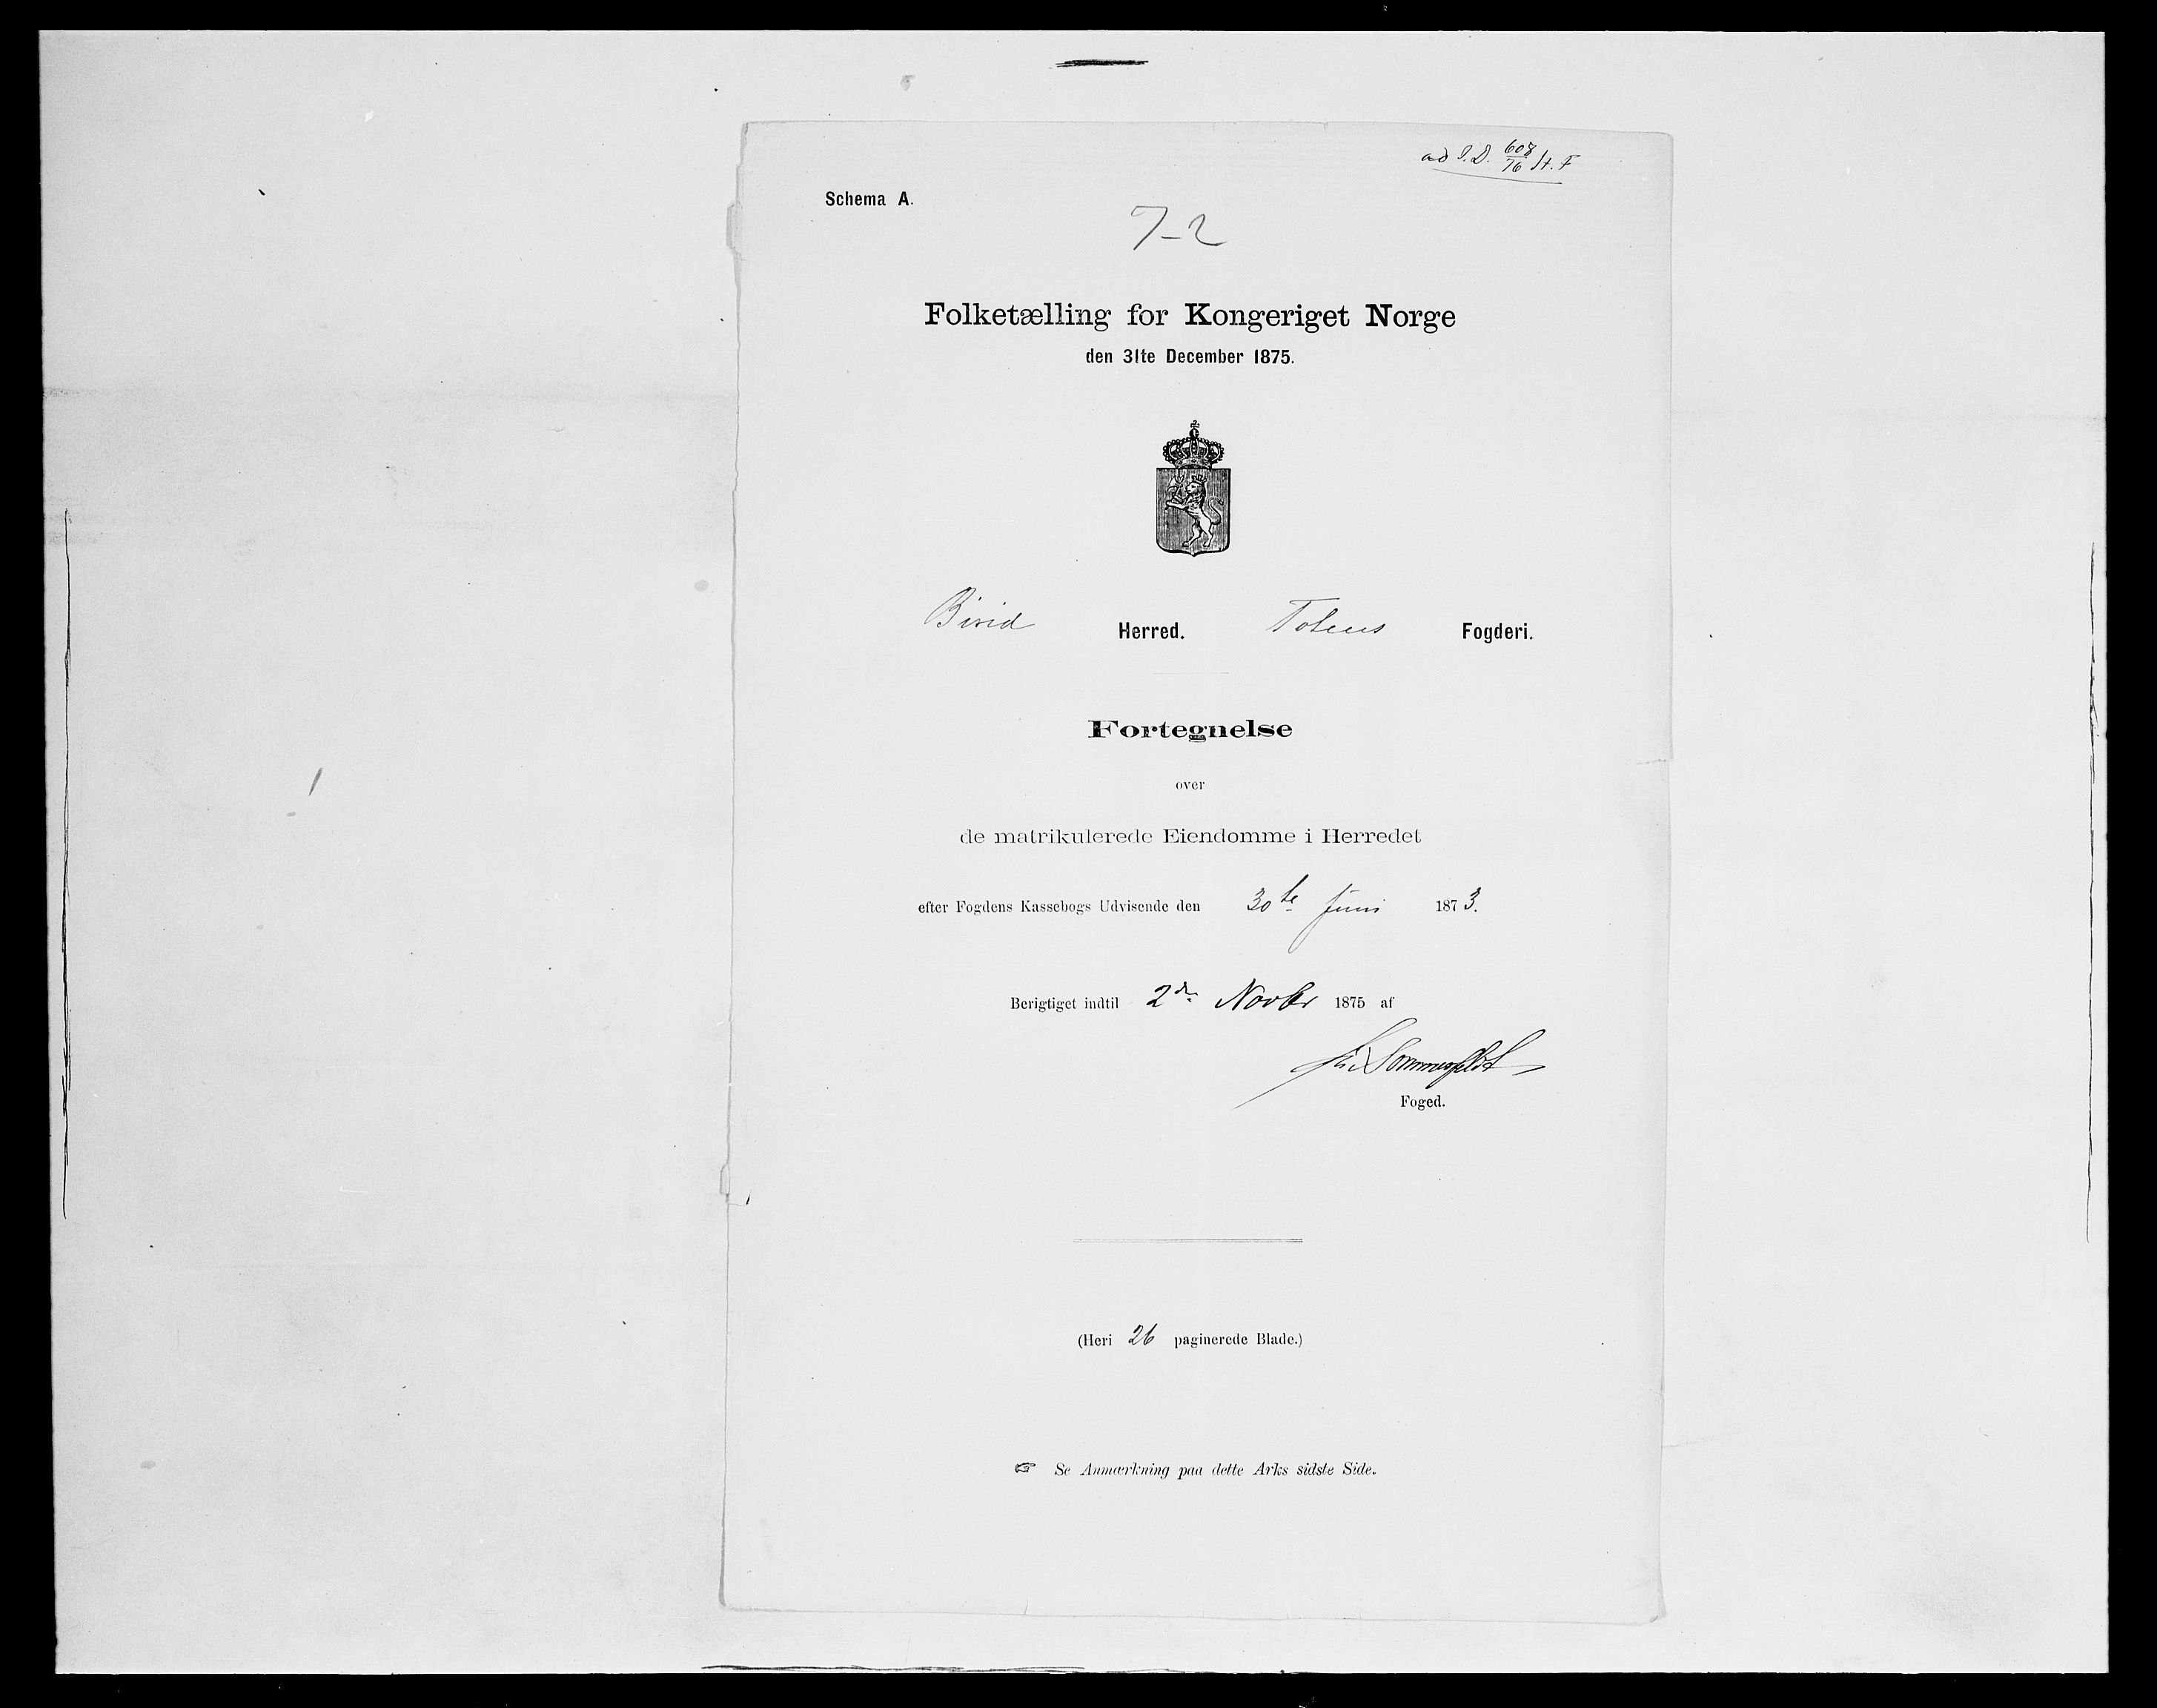 ad I.D. 608/76 St. F
Schema A.
7-2
Folketælling for Kongeriget Norge
den 31te December 1875.
Birid Herred. Totens Fogderi.
Fortegnelse
over
de matrikulerede Eiendomme i Herredet
efter Fogdens Kassebogs Udvisende den 30te Juni 1873.
Berigtiget indtil 2den Novbr 1875 af
Sommerfeldt
Foged.
(Heri 26 paginerede Blade.)
☞ Se Anmærkning paa dette Arks sidste Side.